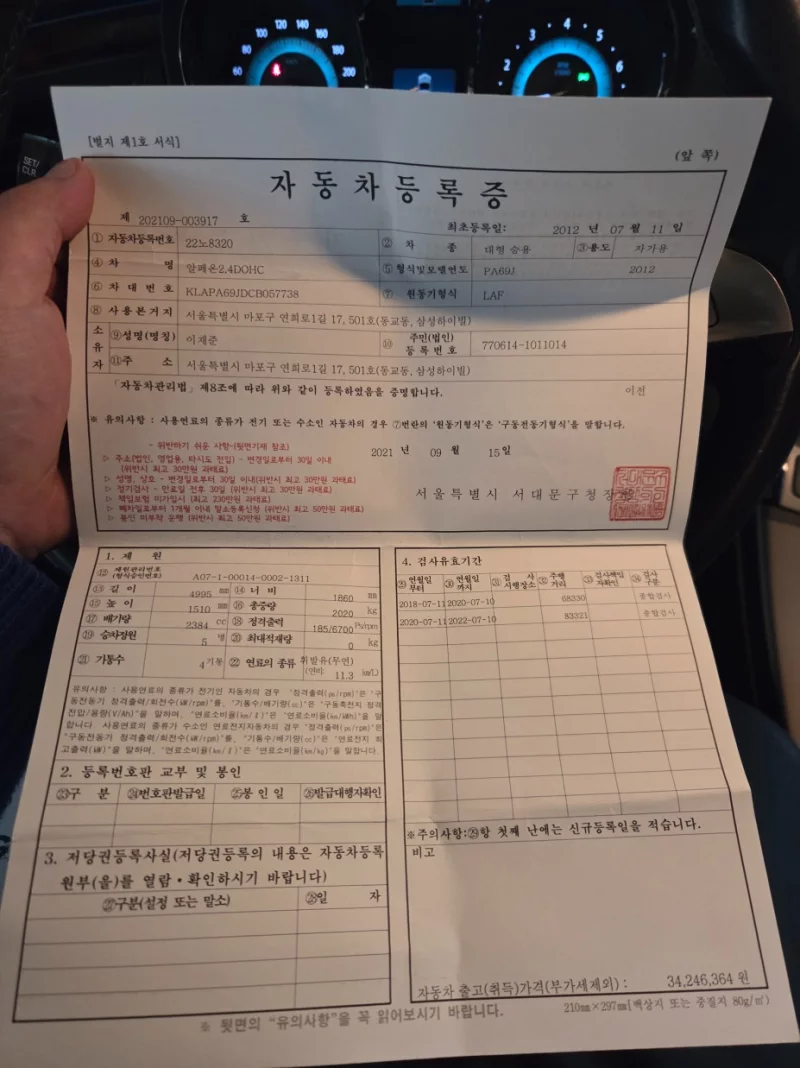 60 80 100 120 140 160 180 200
2 3 4 5 6
SET/
CLR
[별지 제1호 서식]
(앞 쪽)
자동차등록증
제 202109-003917 호
최초등록일: 2012 년 07 월 11 일
① 자동차등록번호 22노8320 ② 차 종 대형 승용 ③용도 자가용
④ 차 명 알페온2.4DOHC ⑤ 형식및모델연도 PA69J 2012
⑥ 차 대 번 호 KLAPA69JDCB057738 ⑦ 원동기형식 LAF
⑧ 사 용 본 거 지 서울특별시 마포구 연희로1길 17, 501호(동교동, 삼성하이빌)
소유자 ⑨성명(명칭) 이재준 ⑩ 주민(법인)등 록 번 호 770614-1011014
⑪주 소 서울특별시 마포구 연희로1길 17, 501호(동교동, 삼성하이빌)
「자동차관리법」 제8조에 따라 위와 같이 등록하였음을 증명합니다. 이전
※ 유의사항 : 사용연료의 종류가 전기 또는 수소인 자동차의 경우 ⑦번란의 '원동기형식'은 '구동전동기형식'을 말합니다.
- 위반하기 쉬운 사항-(뒷면기재 참조)
▷ 주소(법인, 영업용, 타시도 전입) - 변경일로부터 30일 이내
(위반시 최고 30만원 과태료)
▷ 성명, 상호 - 변경일로부터 30일 이내(위반시 최고 30만원 과태료)
▷ 정기검사 - 만료일 전후 30일 (위반시 최고 30만원 과태료)
▷ 책임보험 미가입시 (최고 230만원 과태료)
▷ 폐차일로부터 1개월 이내 말소등록신청 (위반시 최고 50만원 과태료)
▷ 봉인 미부착 운행 (위반시 최고 50만원 과태료)
2021 년 09 월 15일
서울특별시 서대문구청장
1. 제 원
⑫ 제원관리번호
(형식승인번호) A07-1-00014-0002-1311
⑬ 길 이 4995 mm ⑭ 너 비 1860 mm
⑮ 높 이 1510 mm ⑯ 총중량 2020 kg
⑰ 배기량 2384 cc ⑱ 정격출력 185/6700 Ps/rpm
⑲ 승차정원 5 명 ⑳ 최대적재량 0 kg
㉑ 기통수 4기통 ㉒ 연료의 종류 휘발유(무연)
(연비: 11.3 km/L)
유의사항 : 사용연료의 종류가 전기인 자동차의 경우 "정격출력(ps/rpm)"은 "구
동전동기 정격출력/회전수(kW/rpm)"를, "기통수/배기량(cc)"은 "구동축전지 정격
전압/용량(V/Ah)"을 말하며, "연료소비율(km/ℓ)"은 "연료소비율(km/kWh)"을 말
합니다. 사용연료의 종류가 수소인 연료전지자동차의 경우 "정격출력(ps/rpm)"은
"구동전동기 정격출력/회전수(kW/rpm)"를, "기통수/배기량(cc)"은 "연료전지 최
고출력(kW)"을 말하며, "연료소비율(km/ℓ)"은 "연료소비율(km/kg)"을 말합니다.
2. 등록번호판 교부 및 봉인
㉓구 분 ㉔번호판발급일 ㉕봉 인 일 ㉖발급대행자확인
3. 저당권등록사실(저당권등록의 내용은 자동차등록
원부(을)를 열람・확인하시기 바랍니다)
㉗구분(설정 또는 말소) ㉘일 자
4. 검사유효기간
㉙연월일부터 ㉚연월일까지 ㉛검 사시행장소 ㉜주행거리 ㉝검사책임자확인 ㉞검사구분
2018-07-11 2020-07-10 68330 종합검사
2020-07-11 2022-07-10 83321 종합검사
※주의사항:㉙항 첫째 난에는 신규등록일을 적습니다.
비고
자동차 출고(취득)가격(부가세제외) : 34,246,364 원
※ 뒷면의 "유의사항"을 꼭 읽어보시기 바랍니다.
210㎜×297㎜[백상지 또는 중질지 80g/㎡)